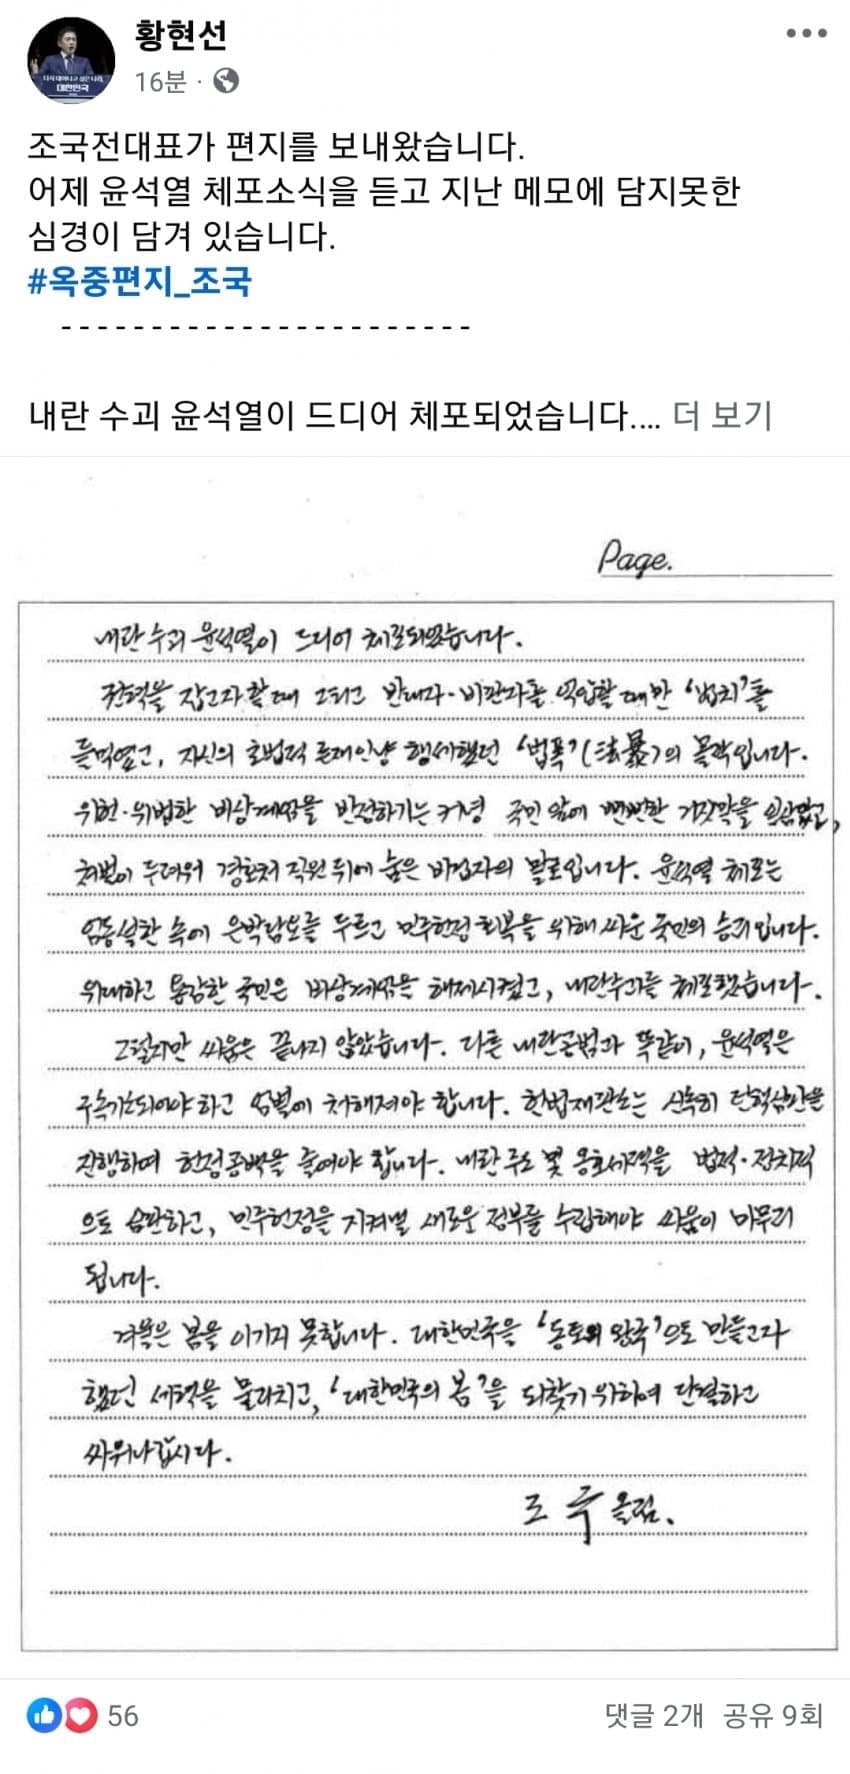 황현선
16분 ·
조국전대표가 편지를 보내왔습니다.
어제 윤석열 체포소식을 듣고 지난 메모에 담지못한
심경이 담겨 있습니다.
#옥중편지_조국
- - - - - - - - - - - - - - - - - - - - - - -
내란 수괴 윤석열이 드디어 체포되었습니다.... 더 보기
Page.
내란 수괴 윤석열이 드디어 체포되었습니다.
권력을 잡고자 할 때 그리고 반대자·비판자를 억압할 때만 '법치'를
들먹였고, 자신의 초법적 존재인냥 행세했던 '법폭'(法暴)의 몰락입니다.
위헌·위법한 비상계엄을 반성하기는 커녕 국민 앞에 뻔뻔한 거짓말을 일삼았고,
처벌이 두려워 경호처 직원 뒤에 숨은 비겁자의 말로입니다. 윤석열 체포는
엄동설한 속에 은박담요를 두르고 민주헌정 회복을 위해 싸운 국민의 승리입니다.
위대하고 용감한 국민은 비상계엄을 해제시켰고, 내란수괴를 체포했습니다.
그렇지만 싸움은 끝나지 않았습니다. 다른 내란공범과 똑같이, 윤석열은
구속기소되어야 하고 엄벌에 처해져야 합니다. 헌법재판소는 신속히 탄핵심판을
진행하며 헌정공백을 줄여야 합니다. 내란 주도 및 옹호세력을 법적·정치적
으로 심판하고, 민주헌정을 지켜낼 새로운 정부를 수립해야 싸움이 마무리
됩니다.
겨울은 봄을 이기지 못합니다. 대한민국을 '동토의 왕국'으로 만들고자
했던 세력을 물리치고, '대한민국의 봄'을 되찾기 위하여 단결하고
싸워나갑시다.
조 국 올림.
56
댓글 2개 공유 9회